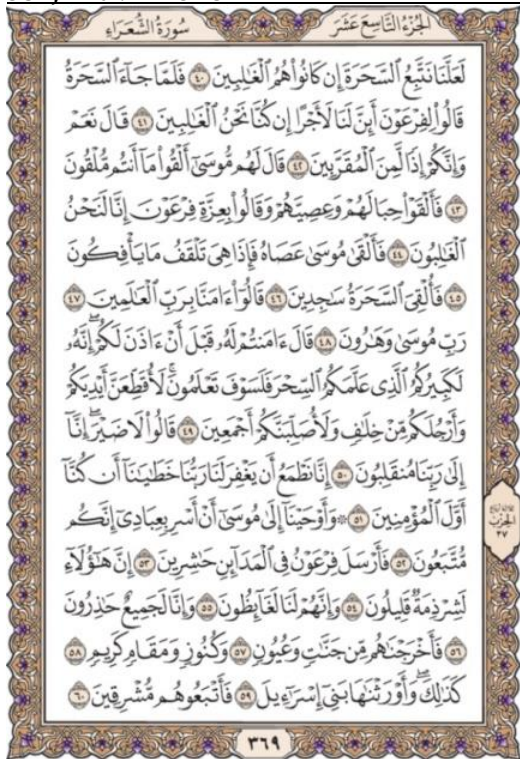 الجُزْءُ التَّاسِعَ عَشَرَ سُورَةُ الشُّعَرَاءِ
لَعَلَّنَا نَتَّبِعُ السَّحَرَةَ إِن كَانُوا۟ هُمُ الْغَٰلِبِينَ ٤٠ فَلَمَّا جَآءَ السَّحَرَةُ
قَالُوا۟ لِفِرْعَوْنَ أَئِنَّ لَنَا لَأَجْرًا إِن كُنَّا نَحْنُ الْغَٰلِبِينَ ٤١ قَالَ نَعَمْ
وَإِنَّكُمْ إِذًا لَّمِنَ الْمُقَرَّبِينَ ٤٢ قَالَ لَهُم مُّوسَىٰٓ أَلْقُوا۟ مَآ أَنتُم مُّلْقُونَ
٤٣ فَأَلْقَوْا۟ حِبَالَهُمْ وَعِصِيَّهُمْ وَقَالُوا۟ بِعِزَّةِ فِرْعَوْنَ إِنَّا لَنَحْنُ
الْغَٰلِبُونَ ٤٤ فَأَلْقَىٰ مُوسَىٰ عَصَاهُ فَإِذَا هِىَ تَلْقَفُ مَا يَأْفِكُونَ
٤٥ فَأُلْقِىَ السَّحَرَةُ سَٰجِدِينَ ٤٦ قَالُوٓا۟ ءَامَنَّا بِرَبِّ الْعَٰلَمِينَ ٤٧
رَبِّ مُوسَىٰ وَهَٰرُونَ ٤٨ قَالَ ءَامَنتُمْ لَهُۥ قَبْلَ أَنْ ءَاذَنَ لَكُمْ ۖ إِنَّهُۥ
لَكَبِيرُكُمُ الَّذِى عَلَّمَكُمُ السِّحْرَ فَلَسَوْفَ تَعْلَمُونَ ۚ لَأُقَطِّعَنَّ أَيْدِيَكُمْ
وَأَرْجُلَكُم مِّنْ خِلَٰفٍ وَلَأُصَلِّبَنَّكُمْ أَجْمَعِينَ ٤٩ قَالُوا۟ لَا ضَيْرَ ۖ إِنَّآ
إِلَىٰ رَبِّنَا مُنقَلِبُونَ ٥٠ إِنَّا نَطْمَعُ أَن يَغْفِرَ لَنَا رَبُّنَا خَطَٰيَٰنَآ أَن كُنَّآ
أَوَّلَ الْمُؤْمِنِينَ ٥١ ۞ وَأَوْحَيْنَآ إِلَىٰ مُوسَىٰٓ أَنْ أَسْرِ بِعِبَادِىٓ إِنَّكُم
مُّتَّبَعُونَ ٥٢ فَأَرْسَلَ فِرْعَوْنُ فِى الْمَدَآئِنِ حَٰشِرِينَ ٥٣ إِنَّ هَٰٓؤُلَآءِ
لَشِرْذِمَةٌ قَلِيلُونَ ٥٤ وَإِنَّهُمْ لَنَا لَغَآئِظُونَ ٥٥ وَإِنَّا لَجَمِيعٌ حَٰذِرُونَ
٥٦ فَأَخْرَجْنَٰهُم مِّن جَنَّٰتٍ وَعُيُونٍ ٥٧ وَكُنُوزٍ وَمَقَامٍ كَرِيمٍ ٥٨
كَذَٰلِكَ وَأَوْرَثْنَٰهَا بَنِىٓ إِسْرَٰٓءِيلَ ٥٩ فَأَتْبَعُوهُم مُّشْرِقِينَ ٦٠
الحِزْب
٣٧
٣٦٩